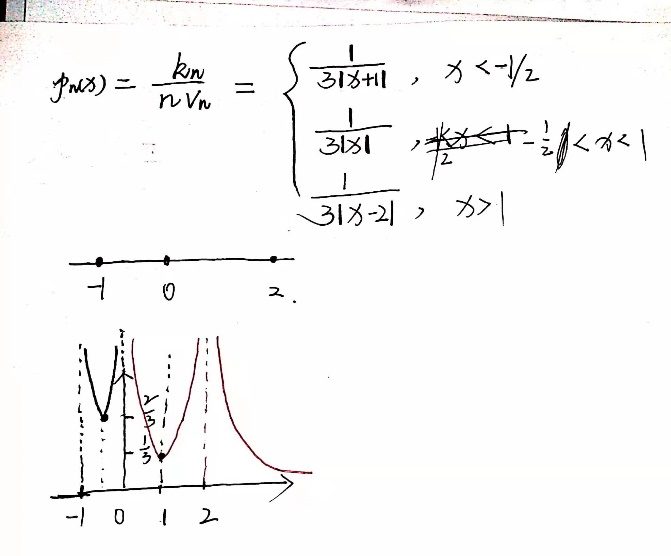 pₙ(x) = kₙ / n Vₙ = { 1 / 3|x+1| , x < -1/2
1 / 3|x| , -1/2 < x < 1
1 / 3|x-2| , x > 1
-1 0 2 .
2/3
1/3
-1 0 1 2